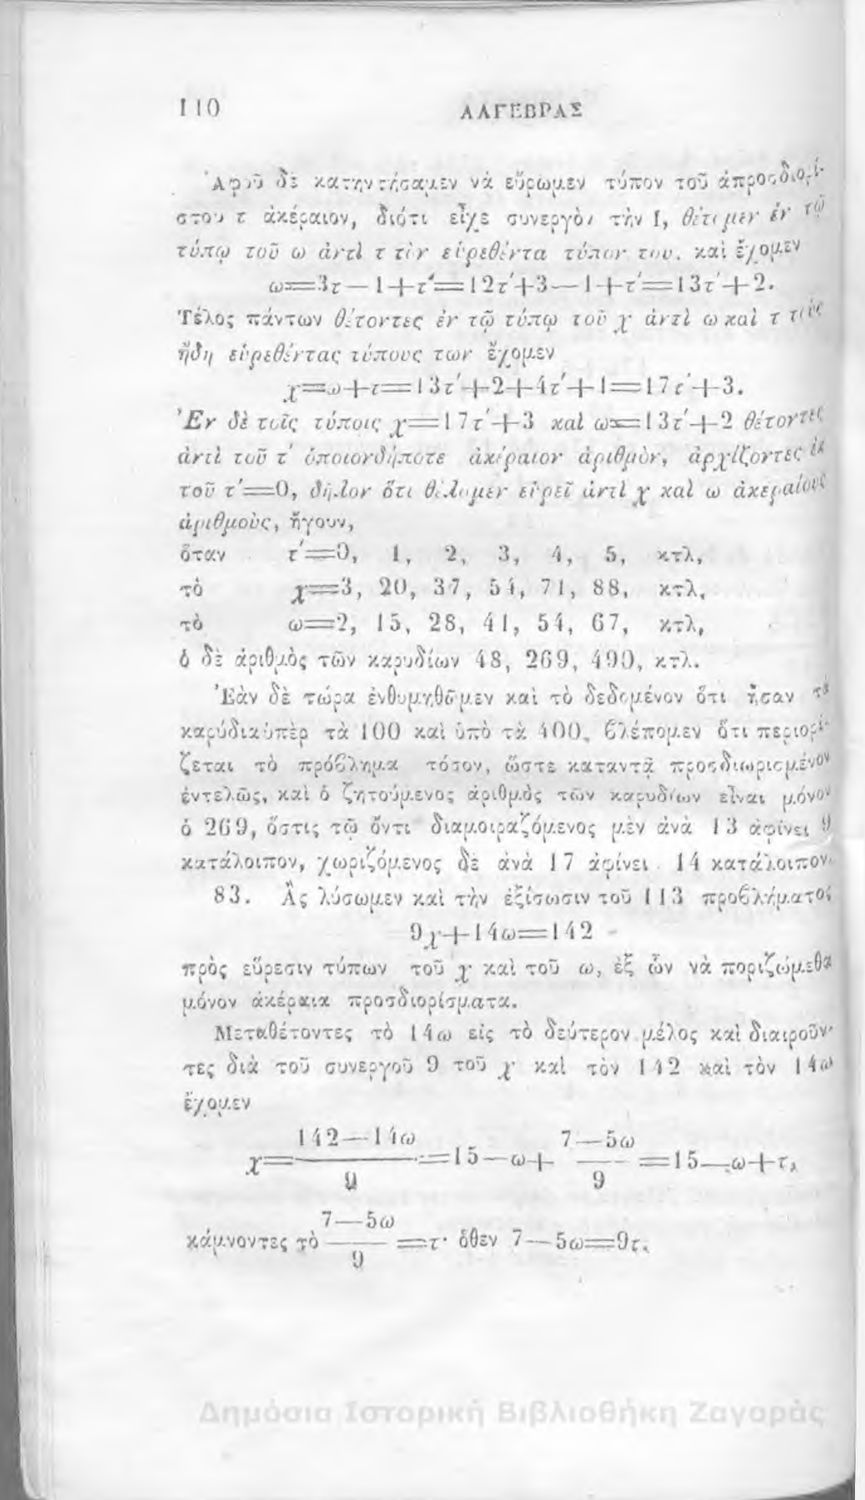 110 ΑΛΓΕΒΡΑΣ
Ἀφοῦ δὲ κατηντήσαμεν νὰ εὕρωμεν τύπον τοῦ ἀπροσδιορί-
στου τ ἀκέραιον, διότι εἶχε συνεργὸν τὴν 1, θέτομεν ἐν τῷ
τύπῳ τοῦ ω ἀντὶ τ τὸν εὑρεθέντα τύπον του, καὶ ἔχομεν
ω=3τ—1+τ'=12τ'+3—1+τ'=13τ'+2.
Τέλος πάντων θέτοντες ἐν τῷ τύπῳ τοῦ χ ἀντὶ ω καὶ τ τοὺς
ἤδη εὑρεθέντας τύπους των ἔχομεν
χ=ω+τ=13τ'+2+4τ'+1=17τ'+3.
Ἐν δὲ τοῖς τύποις χ=17τ'+3 καὶ ω=13τ'+2 θέτοντες
ἀντὶ τοῦ τ' ὁποιονδήποτε ἀκέραιον ἀριθμὸν, ἀρχίζοντες ἐκ
τοῦ τ'=0, δῆλον ὅτι θέλομεν εὑρεῖ ἀντὶ χ καὶ ω ἀκεραίους
ἀριθμοὺς, ἤγουν,
ὅταν τ'=0, 1, 2, 3, 4, 5, κτλ,
τὸ χ=3, 20, 37, 54, 71, 88, κτλ,
τὸ ω=2, 15, 28, 41, 54, 67, κτλ,
ὁ δὲ ἀριθμὸς τῶν καρυδίων 48, 269, 490, κτλ.
Ἐὰν δὲ τώρα ἐνθυμηθῶμεν καὶ τὸ δεδομένον ὅτι ἦσαν τὰ
καρύδια ὑπὲρ τὰ 100 καὶ ὑπὸ τὰ 400, βλέπομεν ὅτι περιορί-
ζεται τὸ πρόβλημα τόσον, ὥστε καταντᾷ προσδιωρισμένον
ἐντελῶς, καὶ ὁ ζητούμενος ἀριθμὸς τῶν καρυδίων εἶναι μόνον
ὁ 269, ὅστις τῷ ὄντι διαμοιραζόμενος μὲν ἀνὰ 13 ἀφίνει 9
κατάλοιπον, χωριζόμενος δὲ ἀνὰ 17 ἀφίνει 14 κατάλοιπον.
83. Ἂς λύσωμεν καὶ τὴν ἐξίσωσιν τοῦ 113 προβλήματος
9χ+14ω=142
πρὸς εὕρεσιν τύπων τοῦ χ καὶ τοῦ ω, ἐξ ὧν νὰ ποριζώμεθα
μόνον ἀκέραια προσδιορίσματα.
Μεταθέτοντες τὸ 14ω εἰς τὸ δεύτερον μέλος καὶ διαιροῦν-
τες διὰ τοῦ συνεργοῦ 9 τοῦ χ καὶ τὸν 142 καὶ τὸν 14ω
ἔχομεν
142—14ω 7—5ω
χ=———=15—ω+ ——— =15—ω+τ,
9 9
7—5ω
κάμνοντες τὸ ——— =τ· ὅθεν 7—5ω=9τ.
9
Δημόσια Ιστορική Βιβλιοθήκη Ζαγοράς